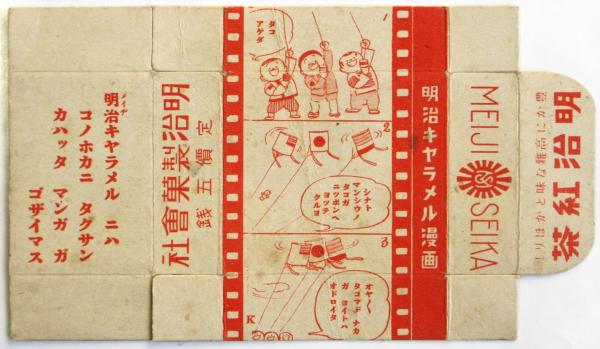 明治紅茶
豊かに高雅な味とかほり!!
MEIJI SEIKA
明治キヤラメル漫画
1
タコ
アゲダ
2
シナト
マンシウノ
タコガ
ニツポンヘ
ヨツテ
クルヨ
3
オヤ〱
タコマデ ナカ
ガ ヨイトハ
オドロイタ
K
定價五銭
明治製菓會社
メイヂ
明治キヤラメル ニハ
コノホカニ タクサン
カハツタ マンガ ガ
ゴザイマス